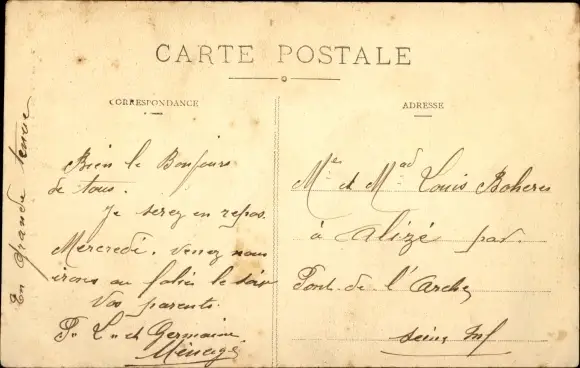 CARTE POSTALE
CORRESPONDANCE
ADRESSE
En grande tenue
Bien le Bonjours
de tous.
Je serez en repos.
Mercredi. venez nous
irons au le soir
Vos parents.
P. L. et Germaine
Ménage
Mr et Mad Louis Boheres
à alizé par
Pont de l'Arche
Seine Inf